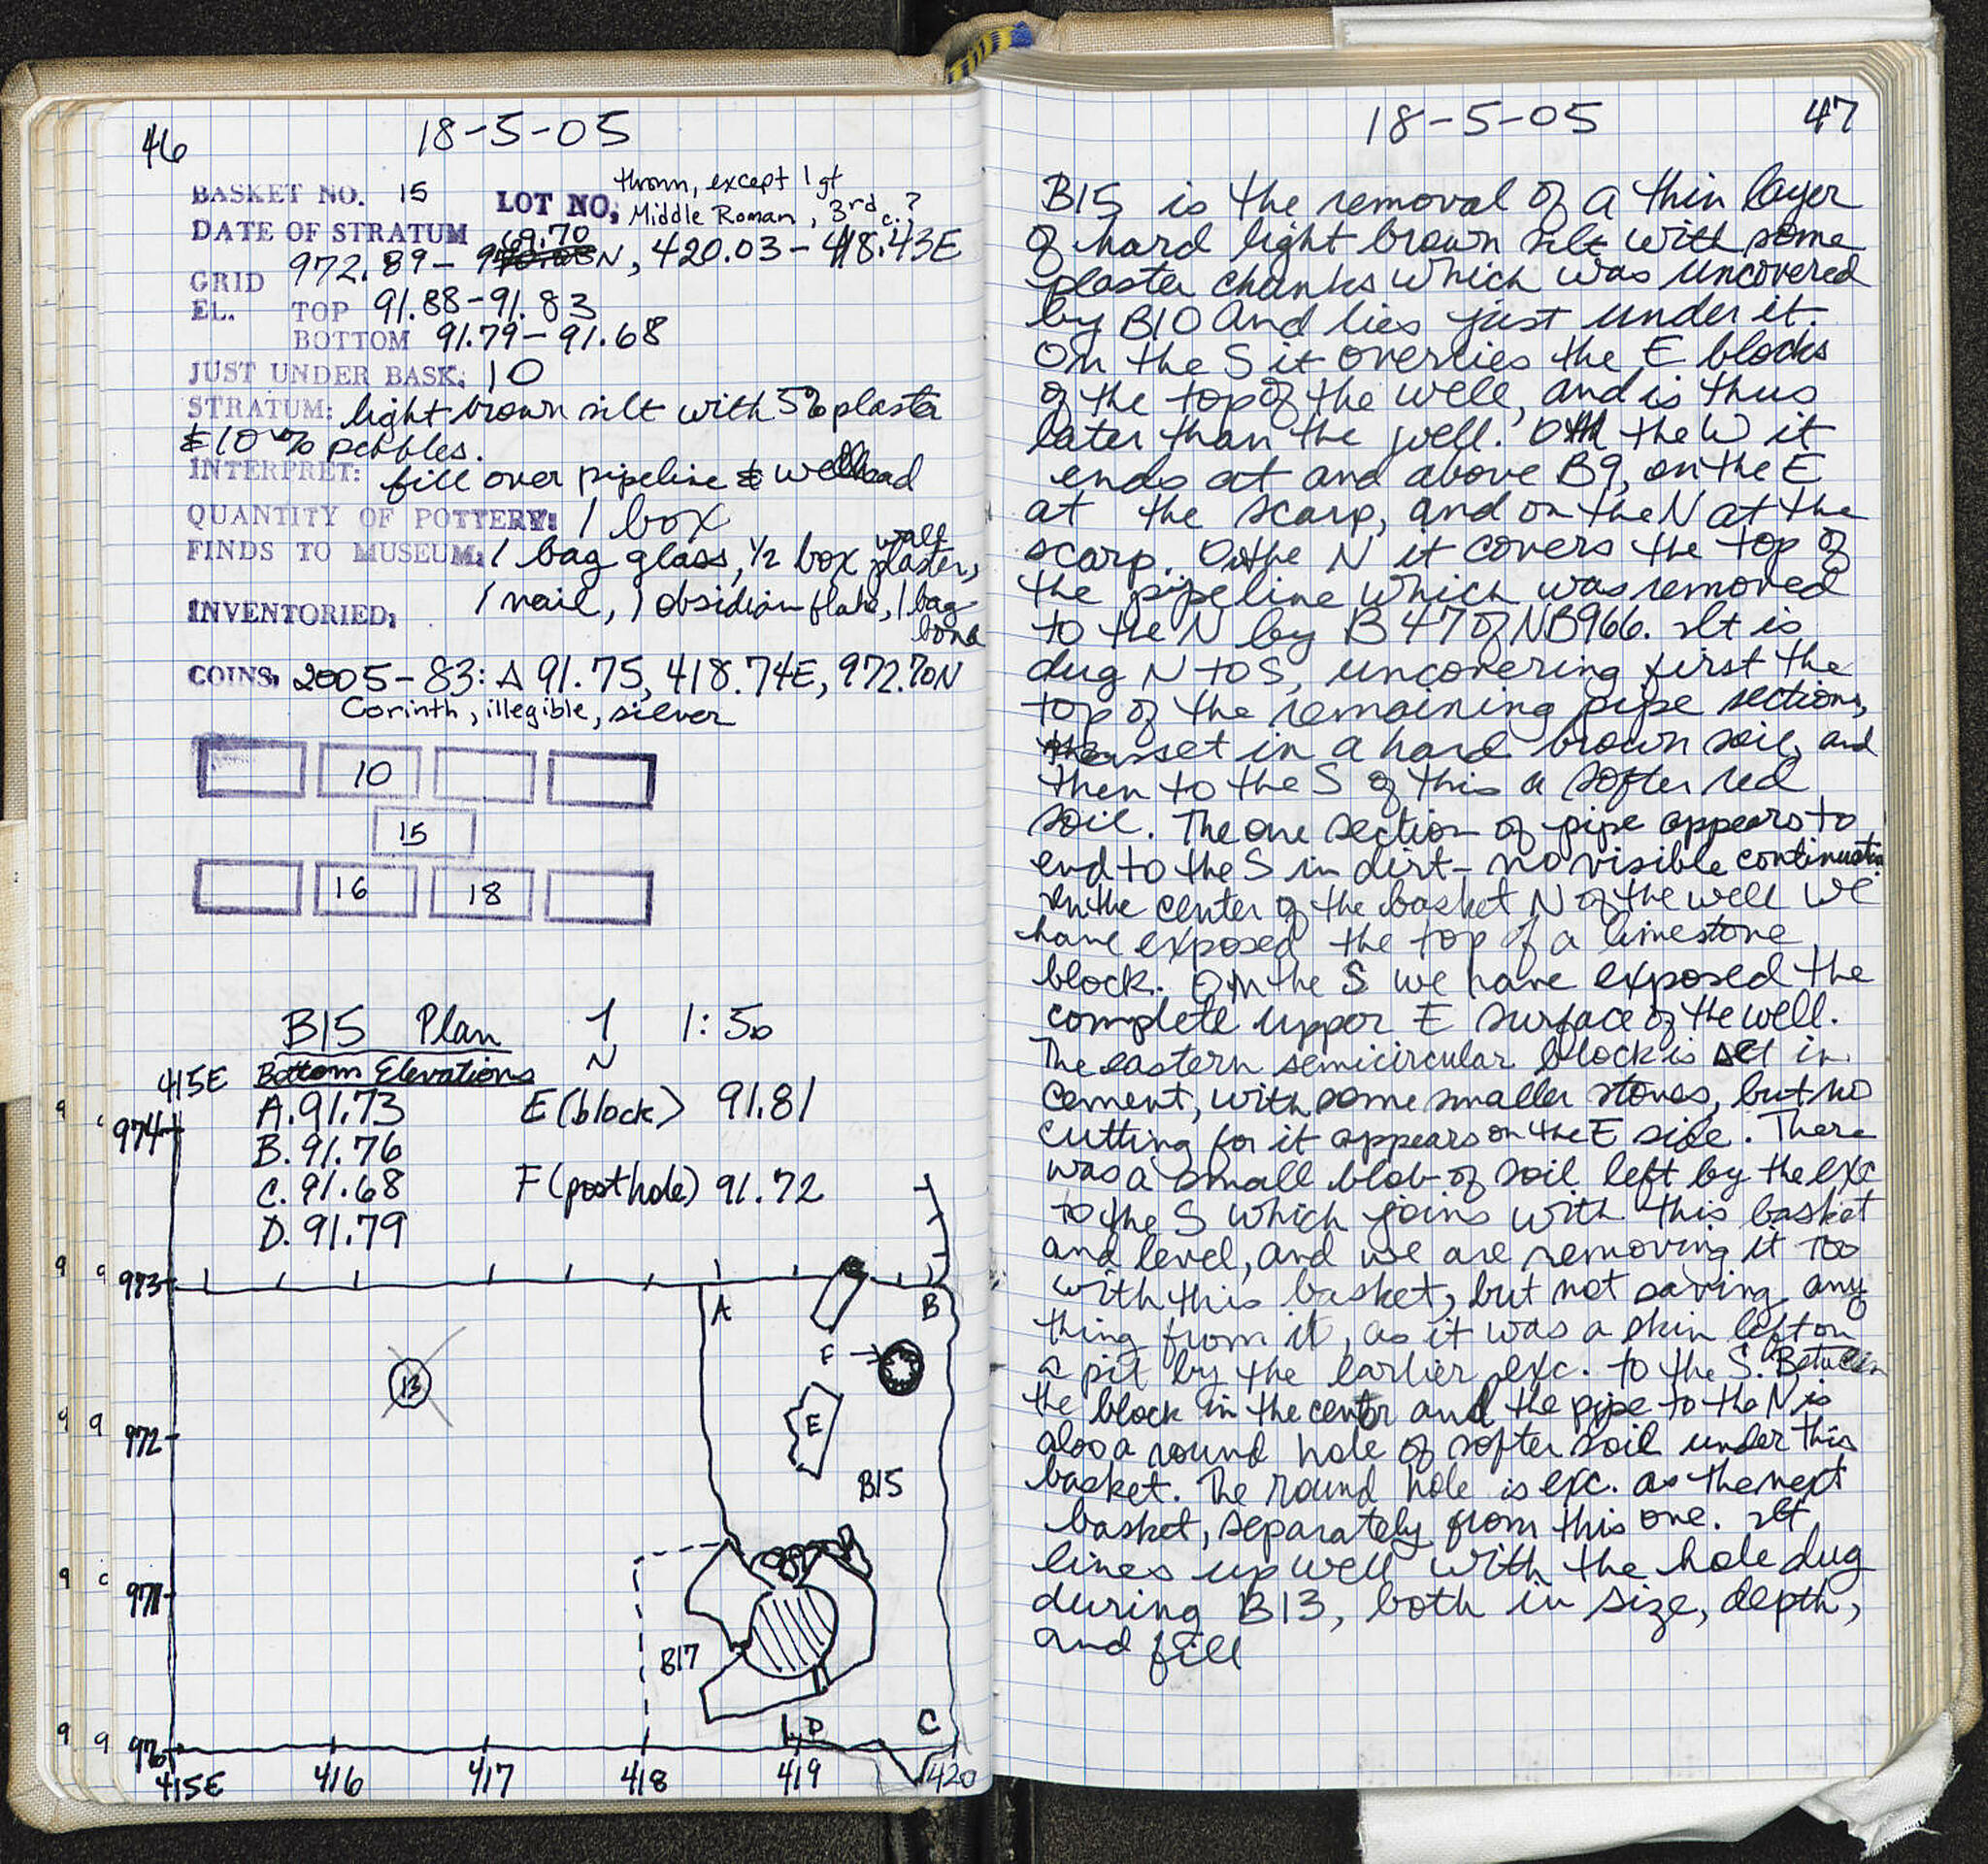 46
18-5-05
BASKET NO. 15
LOT NO. thrown, except 1 gt
DATE OF STRATUM Middle Roman, 3rd c.?
69.70
GRID 972.89- N, 420.03-418.43E
EL. TOP 91.88-91.83
BOTTOM 91.79-91.68
JUST UNDER BASK. 10
STRATUM: light brown silt with 5% plaster
& 10% pebbles.
INTERPRET: fill over pipeline & wellhead
QUANTITY OF POTTERY: 1 box
FINDS TO MUSEUM: 1 bag glass, 1/2 box wall plaster,
1 nail, 1 obsidian flake, 1 bag
bone
INVENTORIED:
COINS. 2005-83: A 91.75, 418.74E, 972.70N
Corinth, illegible, silver
10
15
16 18
B15 Plan N 1:50
415E Bottom Elevations
A. 91.73 E (block) 91.81
974
B. 91.76
C. 91.68 F (posthole) 91.72
D. 91.79
973
A B
F
13
E
972
B15
971
B17
D C
970
415E 416 417 418 419 420
18-5-05 47
B15 is the removal of a thin layer
of hard light brown silt with some
plaster chunks which was uncovered
by B10 and lies just under it.
On the S it overlies the E blocks
of the top of the well, and is thus
later than the well. On the W it
ends at and above B9, on the E
at the scarp, and on the N at the
scarp. On the N it covers the top of
the pipeline which was removed
to the N by B47 of NB966. It is
dug N to S, uncovering first the
top of the remaining pipe sections,
set in a hard brown soil, and
then to the S of this a softer red
soil. The one section of pipe appears to
end to the S in dirt - no visible continuatio
In the center of the basket N of the well we
have exposed the top of a limestone
block. On the S we have exposed the
complete upper E surface of the well.
The eastern semicircular block is set in
cement, with some smaller stones, but no
cutting for it appears on the E side. There
was a small blob of soil left by the exc
to the S which joins with this basket
and level, and we are removing it too
with this basket, but not saving any
thing from it, as it was a skin left on
a pit by the earlier exc. to the S. Between
the block in the center and the pipe to the N is
also a round hole of softer soil under this
basket. The round hole is exc. as the next
basket, separately from this one. It
lines up well with the hole dug
during B13, both in size, depth,
and fill